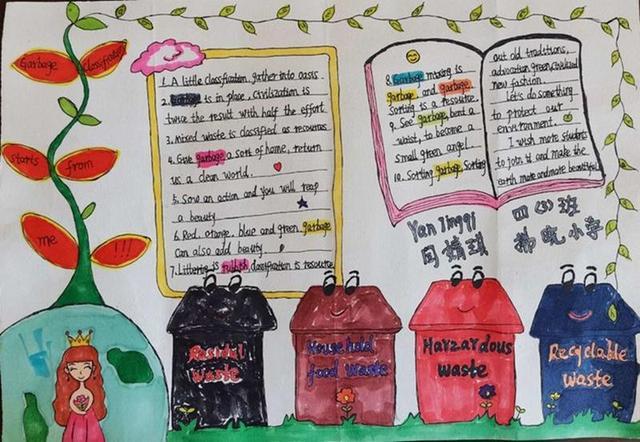 Garbage Classification
starts from
me !!!
1. A little classification, gather into oasis
2. Garbage is in place, civilization is
twice the result with half the effort
3. Mixed waste is classified as resources
4. Give garbage a sort of home, return
us a clean world.
5. Sow an action and you will reap
a beauty
6. Red, orange, blue and green garbage
can also add beauty
7. Littering is rubbish classification is resource
8. Garbage mixing is
garbage, and garbage
sorting is a resource.
9. See garbage, bent a
waist, to become a
small green angel
10. Sorting garbage Sorting
out old traditions,
advocation green, civilized
new fashion.
Let's do something
to protect our
environment.
I wish more students
to join it and make the
earth more and more beautiful
Yan Jingqi
闫婧琪
四(3)班
拂晓小学
Residul
waste
Household
food waste
Harzardous
waste
Recyclable
waste